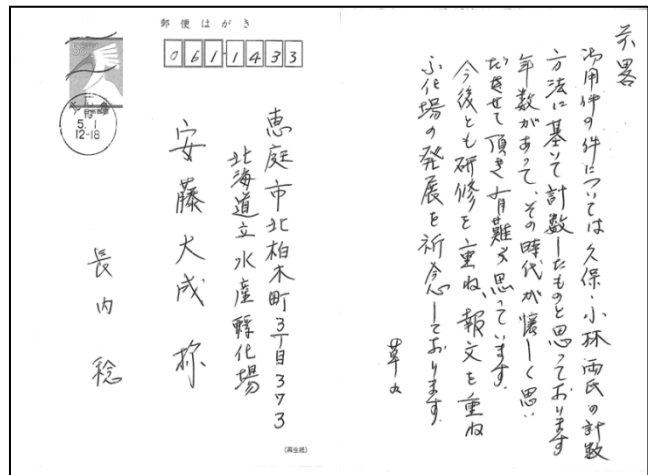 郵便はがき
061-1433
50
5.1
12-18
恵庭市北柏木町3丁目373
北海道立水産孵化場
安藤大成 様
長内 稔
(再生紙)
前略
御用件の件については久保・小林両氏の計数
方法に基いて計数したものと思っております
年数があって、その時代が懐しく思い
ださせて頂き有難く思っています。
今後とも研修を重ね、報文を重ね
ふ化場の発展を祈念しております。
草々